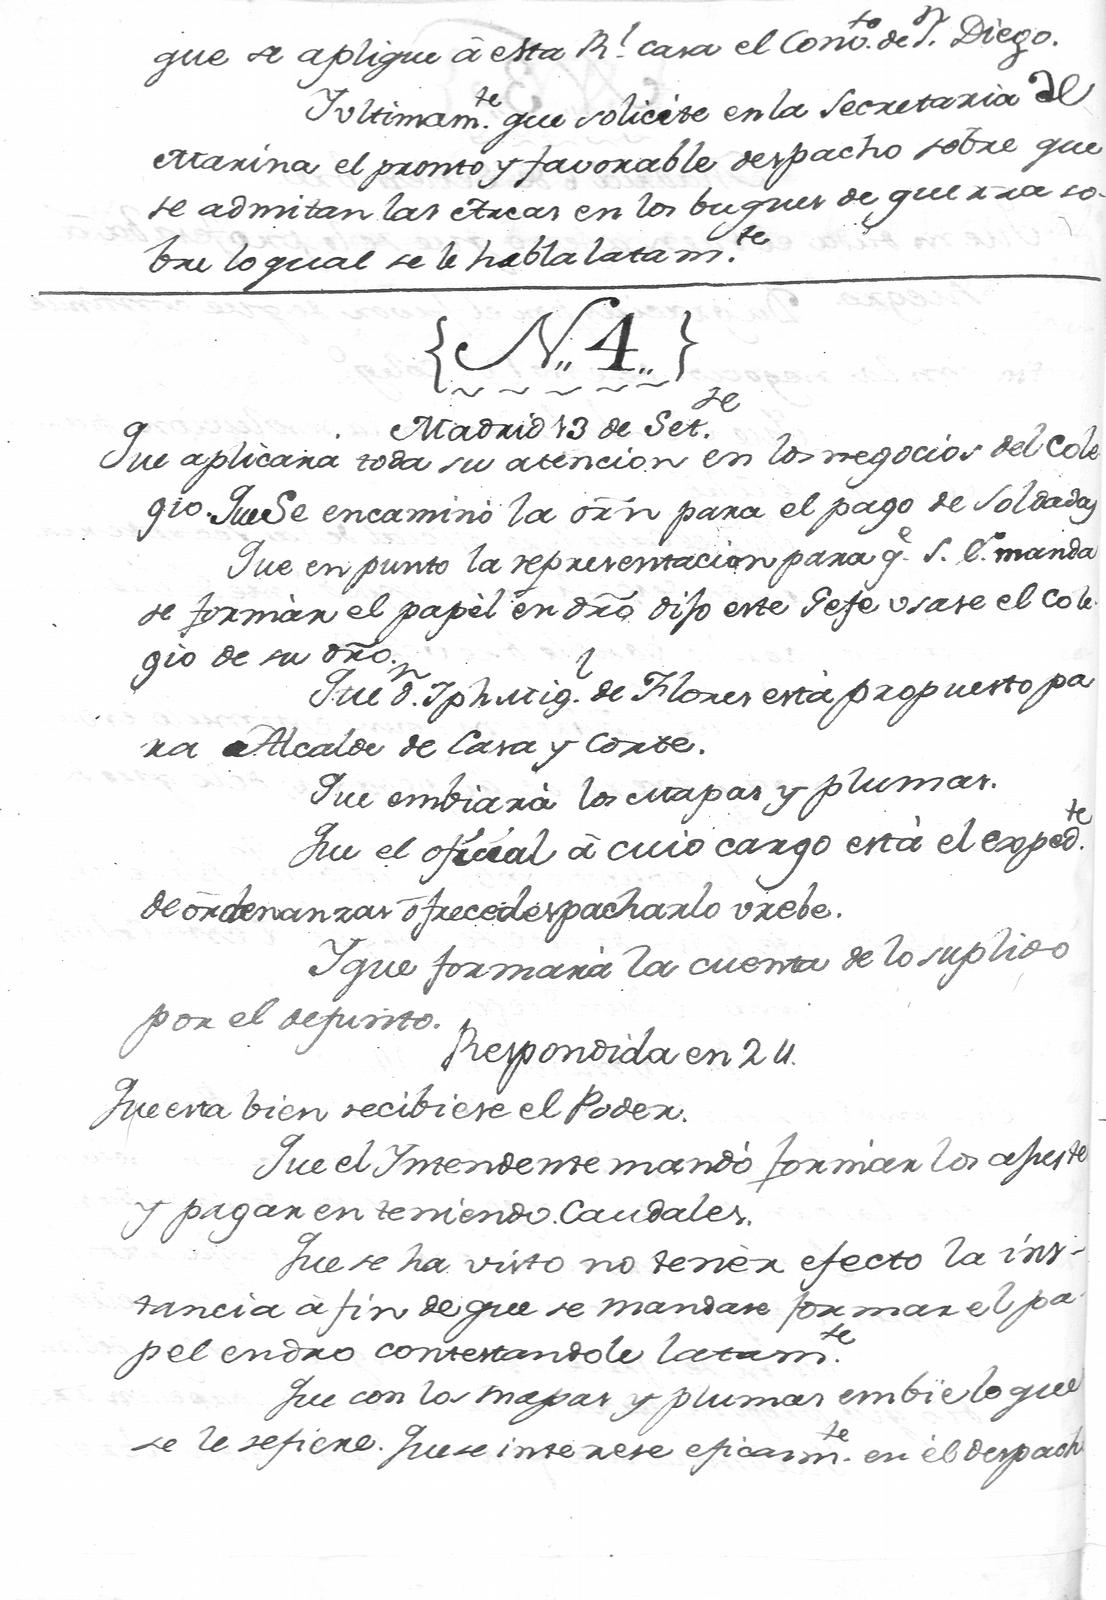 que se aplique â esta Rl. casa el Convto. de Sn. Diego.
Y ultimamte. que solicite en la Secretaria de
Marina el pronto y favorable despacho sobre que
se admitan las Arcas en los buques de guerra so-
bre lo qual se le habla latamte.
{N,, 4,,}
Madrid 13 de Setre.
Que aplicará toda su atencion en los negocios del Cole
gio. Que Se encaminó la orn para el pago de Soldadas
Que en punto la representacion para qe. S. E. manda
se formàr el papèl en dro dijo este Gefe usase el Cole-
gio de su dro.
Que dn. Jph Migl. de Flores està propuesto pa
ra Alcalde de Casa y Corte.
Que embiarà los Mapas y plumas.
Que el oficial â cuio cargo està el expedte.
de ordenanzas ofrece despacharlo vrebe.
Y que formarà la cuenta de lo suplido
por el defunto.
Respondida en 24.
Que esta bien recibiese el Poder.
Que el Yntendente mandò formàr los ajuste
y pagar en teniendo Caudales.
Que se ha visto no tenèr efecto la ins-
tancia à fin de que se mandase formar el pa-
pel en dro contestandole latamte.
Que con los mapas y plumas embie lo que
se le refiere. Que se interese eficazmte. en el despach